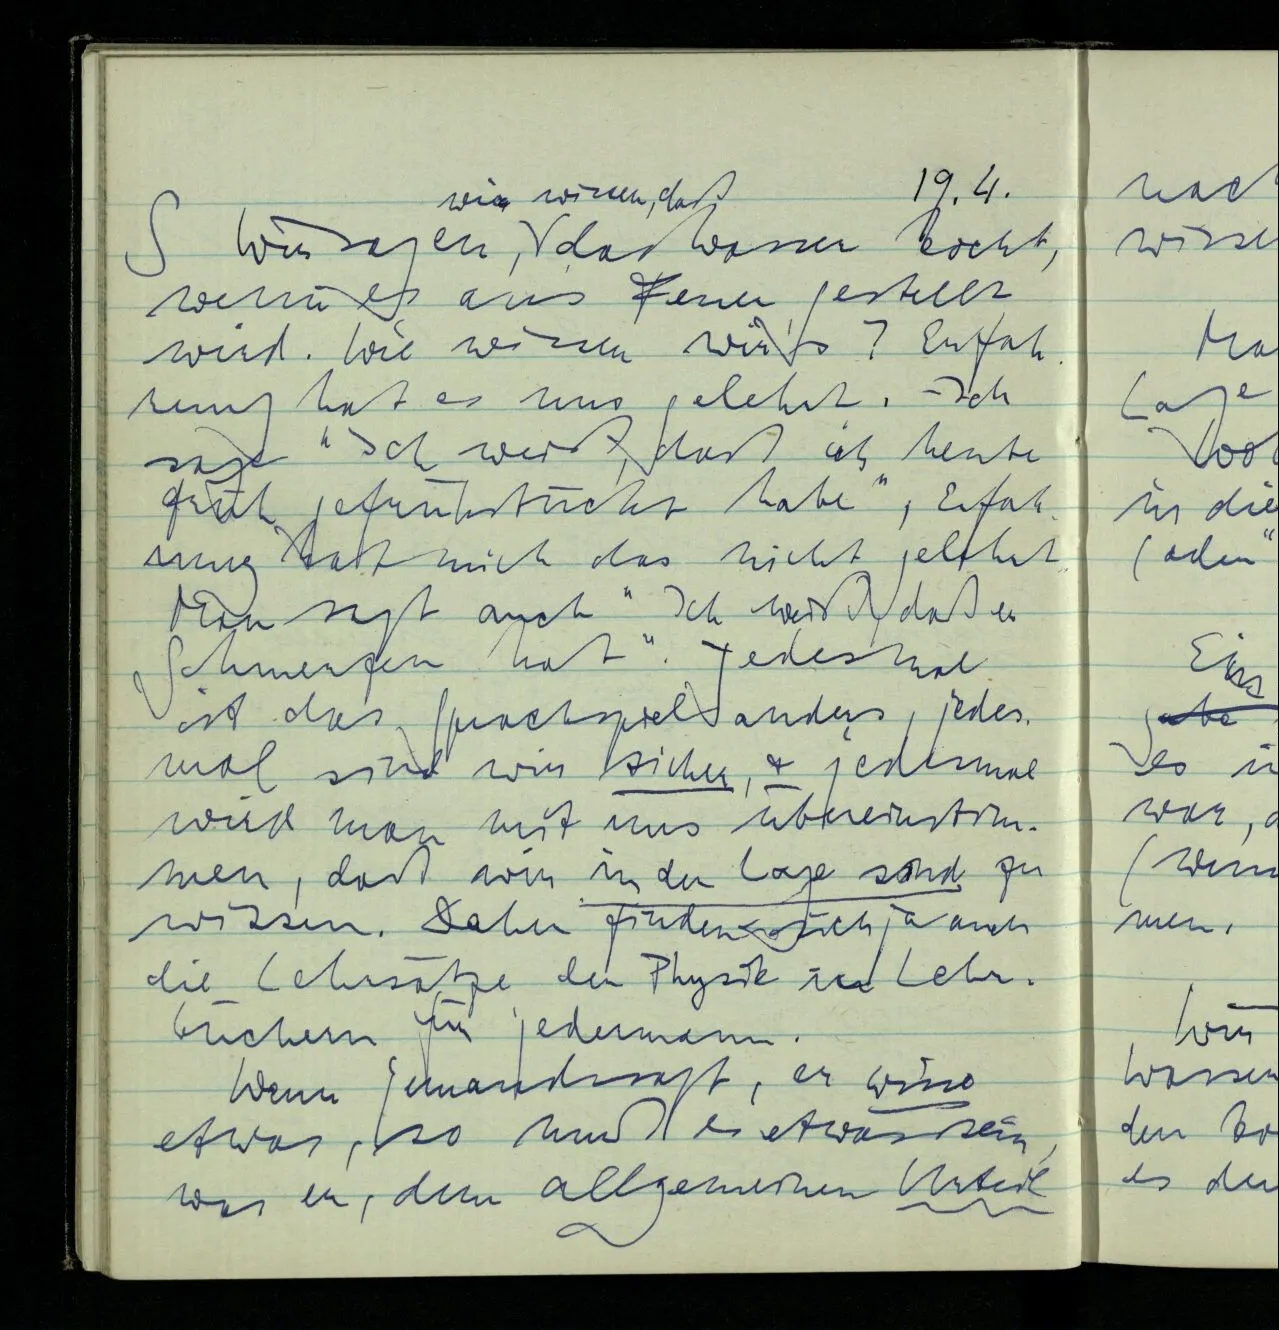 19.4.
wir wissen, daß
S Wir sagen, das Wasser kocht,
wenn es ans Feuer gestellt
wird. Wie wissen wir's? Erfah-
rung hat es uns gelehrt. – Ich
sage "Ich weiß, daß ich heute
früh gefrühstückt habe", Erfah-
rung hat mich das nicht gelehrt.
Man sagt auch "Ich weiß, daß er
Schmerzen hat". Jedesmal
ist das Sprachspiel anders, jedes-
mal sind wir sicher, & jedesmal
wird man mit uns übereinstim-
men, daß wir in der Lage sind zu
wissen. Daher finden sich ja auch
die Lehrsätze der Physik in Lehr-
büchern für jedermann.
Wenn jemand sagt, er wisse
etwas, so muß es etwas sein,
was er, dem allgemeinen Urteil
nach
wissen
Lage
in die
(oder"
Eins
es
war,
(wenn
men.
Wir
Wasser
den
es der